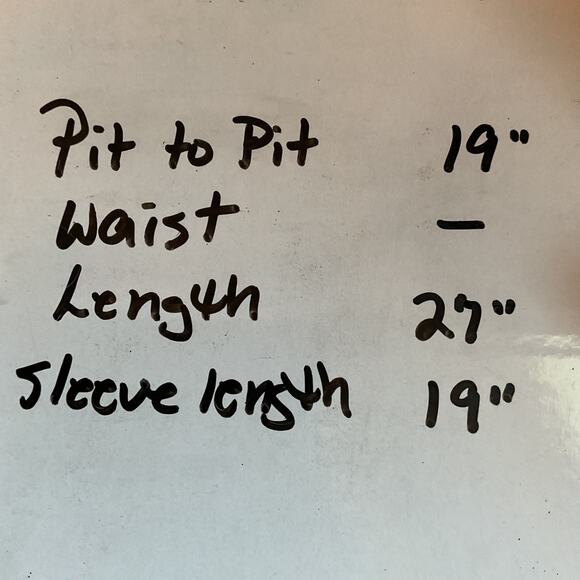 Pit to Pit 19"
Waist —
Length 27"
Sleeve length 19"